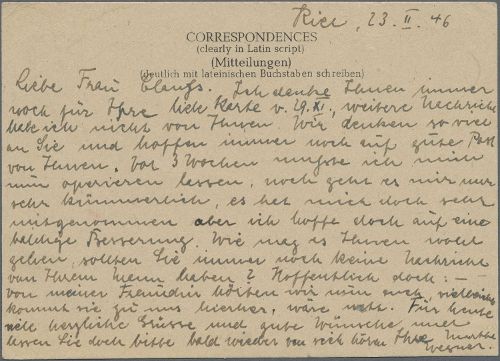 Rice, 23. II. 46
CORRESPONDENCES
(clearly in Latin script)
(Mitteilungen)
(deutlich mit lateinischen Buchstaben schreiben)
Liebe Frau Ich danke Ihnen immer
noch für Ihre liebe Karte v. 29. XI., weitere Nachricht
habe ich nicht von Ihnen. Wir denken so viel
an Sie und hoffen immer noch auf gute Post
von Ihnen. Vor 3 Wochen musste ich mich
nun operieren lassen, noch geht es mir nur
sehr kümmerlich, es hat mich doch sehr
mitgenommen aber ich hoffe doch auf eine
baldige Besserung. Wie mag es Ihnen wohl
gehen, sollten Sie immer noch keine Nachricht
von Ihrem Mann haben? Hoffentlich doch: –
von meiner Freundin hörten wir nun auch vielleicht
kommt sie zu uns hierher, wäre nett. Für heute
viele herzliche Grüsse und gute Wünsche und
lassen Sie doch bitte bald wieder von sich hören Ihre Martha
Wegner.